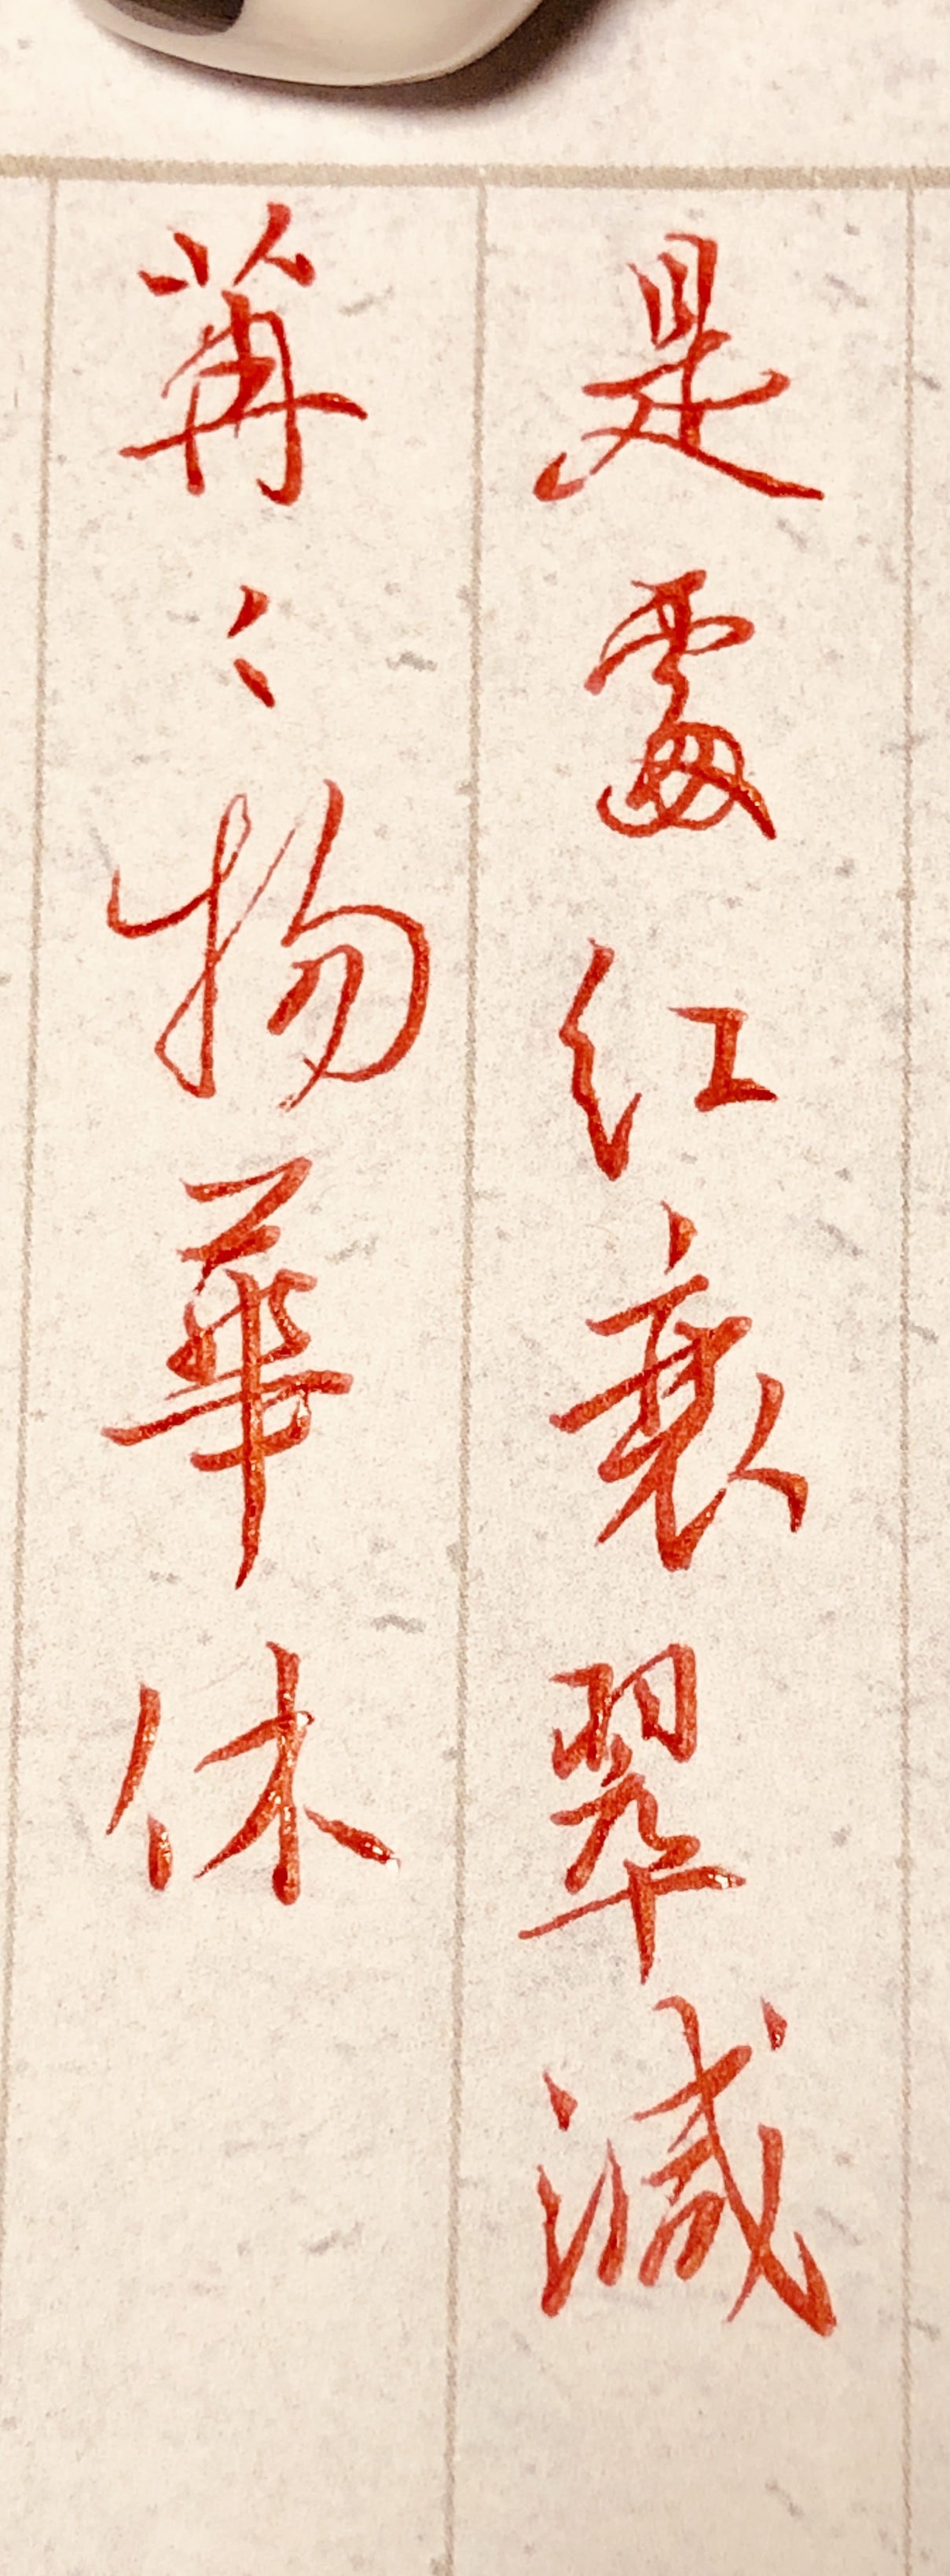 是處红衰翠減
苒〻物華休